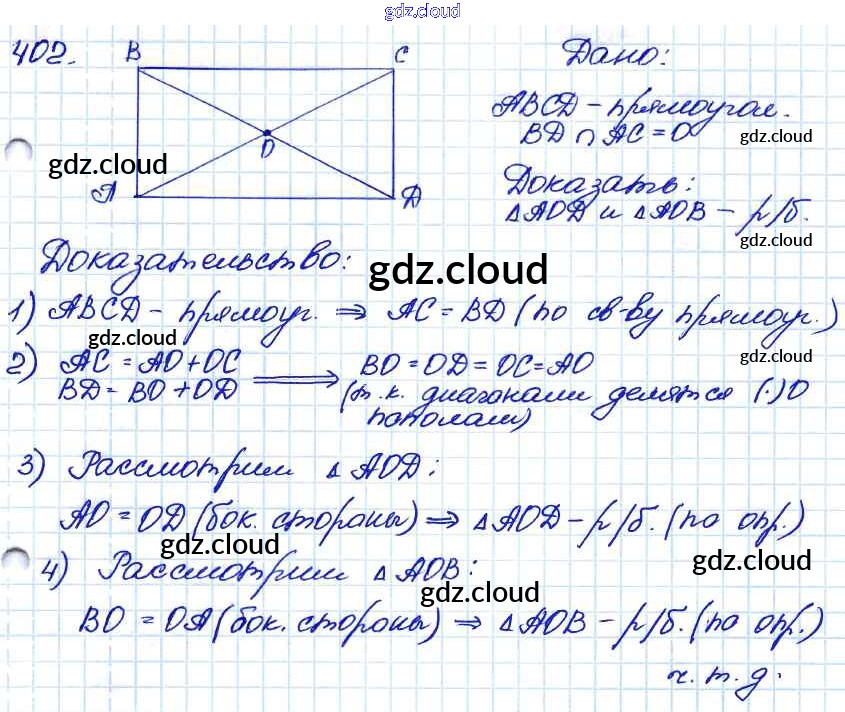 gdz.cloud
402.
B
C
D
А
D
gdz.cloud
Дано:
ABCD – прямоугол.
BD ∩ AC = O
gdz.cloud
Доказать:
△AOD и △AOB – р/б.
gdz.cloud
Доказательство:
gdz.cloud
1) ABCD – прямоуг. ⇒ AC = BD (по св-ву прямоуг.)
gdz.cloud
2) AC = AO + OC ⟹ BO = OD = OC = AO
gdz.cloud
BD = BO + OD (т.к. диагонали делятся (·) O
пополам)
3) Рассмотрим △AOD:
AO = OD (бок. стороны) ⇒ △AOD – р/б. (по опр.)
gdz.cloud
gdz.cloud
4) Рассмотрим △AOB:
gdz.cloud
BO = OA (бок. стороны) ⇒ △AOB – р/б. (по опр.)
ч.т.д.